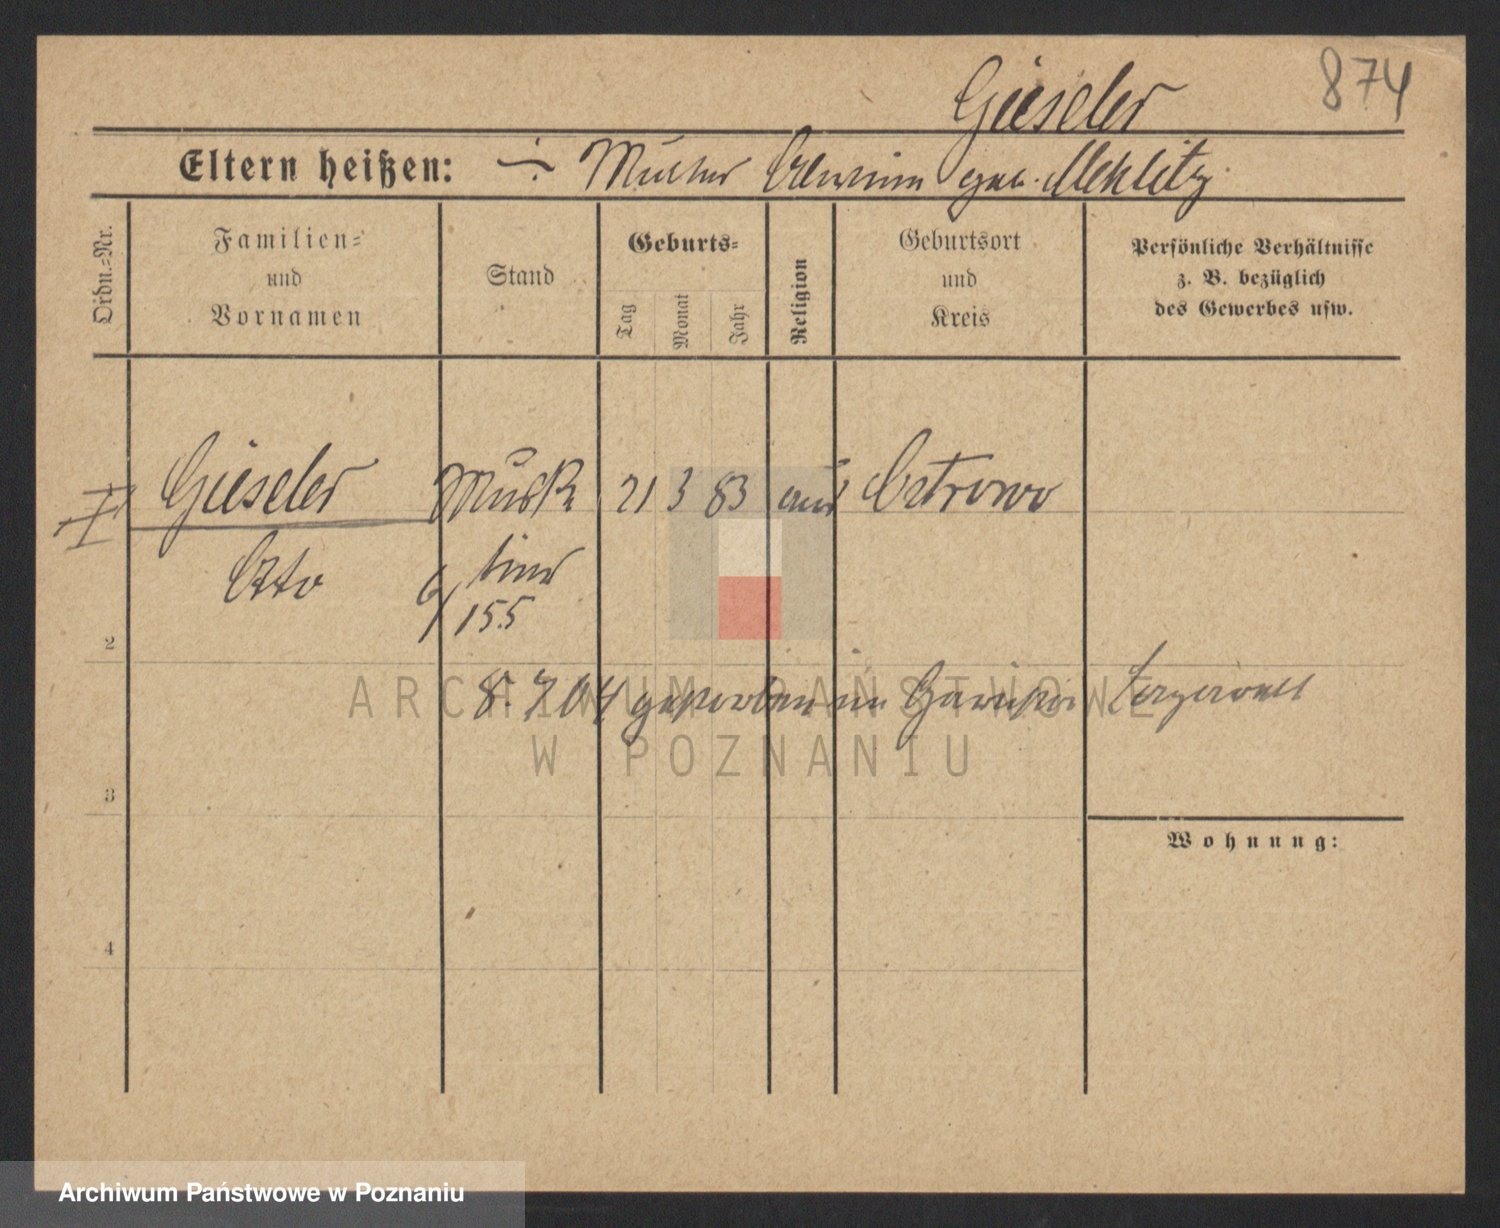 874
Gieseler
Eltern heißen: ·/· Mutter geb. Mehlitz
Ordn.-Nr.
Familien-
und
Vornamen
Stand
Geburts-
Tag
Monat
Jahr
Religion
Geburtsort
und
Kreis
Persönliche Verhältnisse
z. B. bezüglich
des Gewerbes usw.
II Gieseler Musk 21 3 83 Ostrowo
Otto
6/155
2
8. 7 04 gestorben im Garnison Lazarett
3
Wohnung:
4
ARCHIWUM PAŃSTWOWE
W POZNANIU
Archiwum Państwowe w Poznaniu